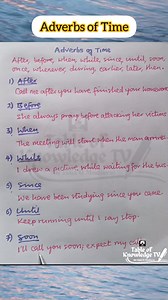 Adverbs of Time
Adverbs of Time
After, before, when, while, since, until, soon,
once, whenever, during, earlier, later, then.
1) After
Call me after you have finished your homework
2) Before
She always prays before attacking her victims
3) When
The meeting will start when the man arrives
4) While
I drew a picture while waiting for the bus
5) Since
We have been studying since you came
6) Until
Keep running until I say stop.
7) Soon
I'll call you soon, expect my call
Table of
Knowledge TV